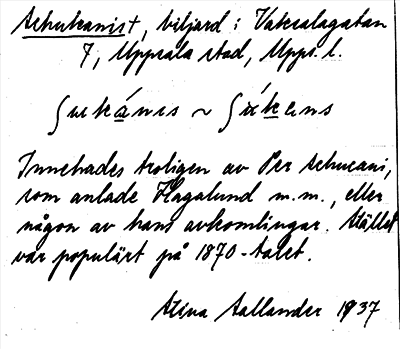 Schukanist, biljard i Vaksalagatan
7, Uppsala stad, Uppl. l.
ʃukánis ~ ʃúkens
Innehades troligen av Per Schucani,
som anlade Flagalund m.m., eller
någon av hans avkomlingar. Stället
var populärt på 1870-talet.
Stina Sallander 1937